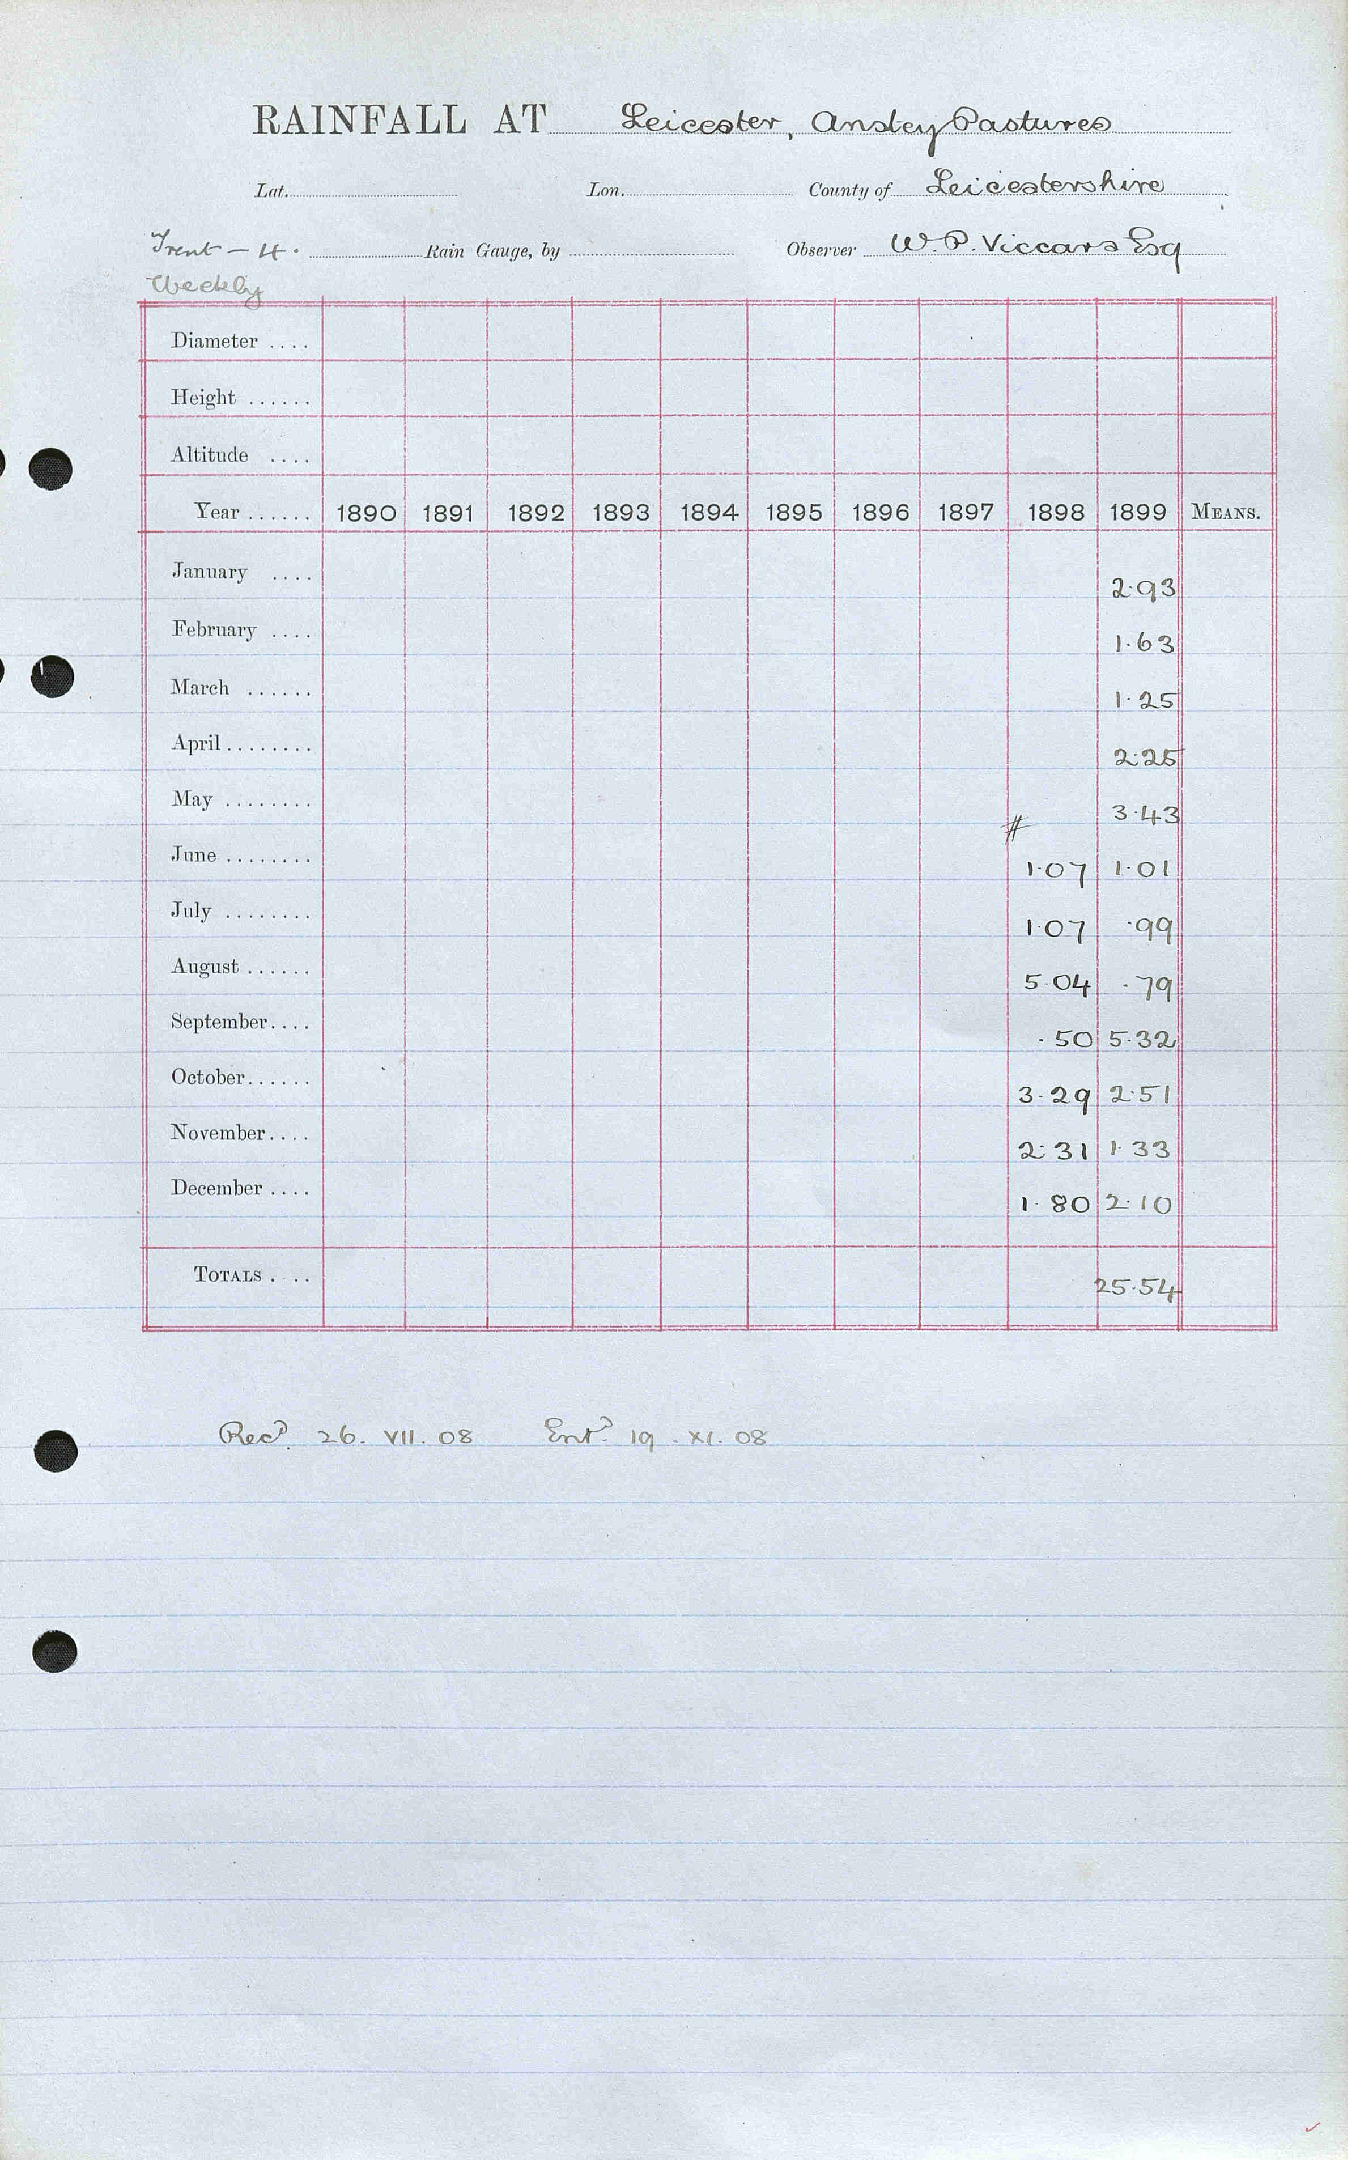 RAINFALL AT Leicester, Anstey Pastures
Lat. Lon. County of Leicestershire
Trent - 4. Rain Gauge, by Observer W. P. Viccars Esq
Weekly
Diameter ....
Height ......
Altitude ....
Year ...... 1890 1891 1892 1893 1894 1895 1896 1897 1898 1899 MEANS.
January .... 2.93
February .... 1.63
March ...... 1.25
April ........ 2.25
May ........ 3.43
#
June ........ 1.07 1.01
July ........ 1.07 .99
August ...... 5.04 .79
September .... .50 5.32
October ...... 3.29 2.51
November .... 2.31 1.33
December .... 1.80 2.10
TOTALS . .. 25.54
Recd. 26. VII. 08 Entd. 19. XI. 08